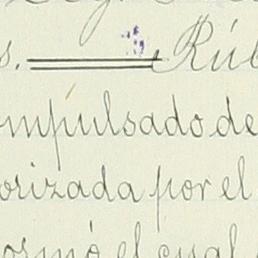 s. Rúb
ompulsado de
orizada por el
ormó el cual